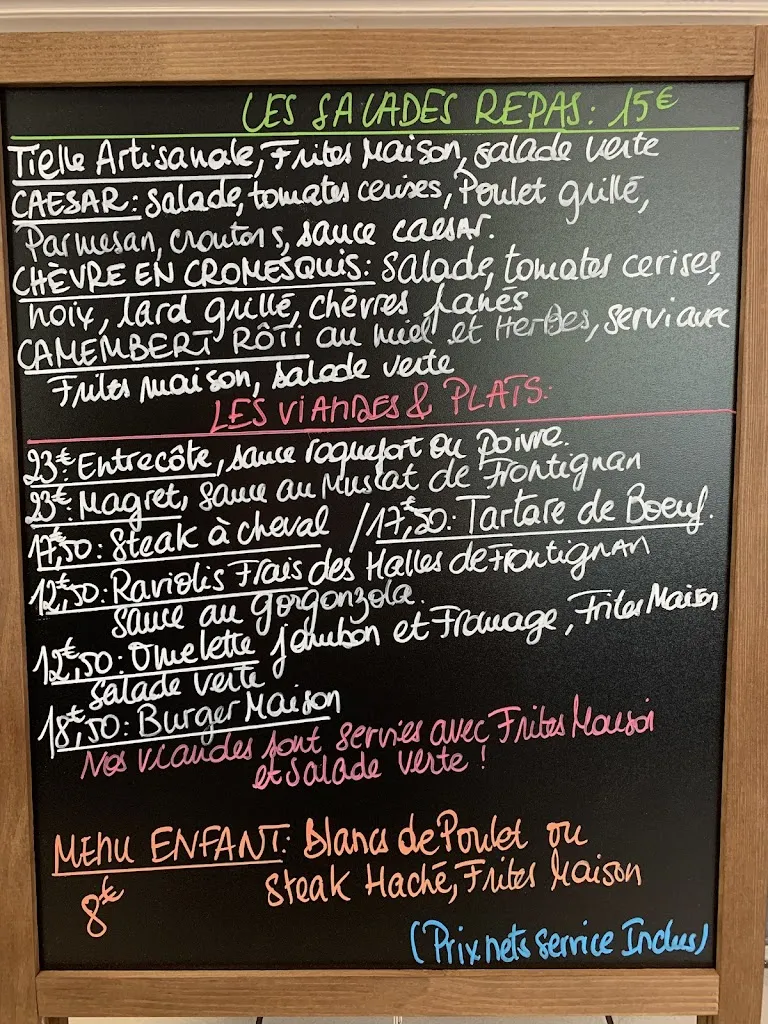 LES SALADES REPAS: 15€
Tielle Artisanale, Frites Maison, salade verte
CAESAR: Salade, tomates cerises, Poulet grillé,
Parmesan, croutons, sauce caesar.
CHÈVRE EN CROMESQUIS: Salade, tomates cerises,
noix, lard grillé, chèvres panés
CAMEMBERT RÔTI au miel et HerBes, servi avec
Frites maison, salade verte
LES VIANDES & PLATS:
23€: Entrecôte, sauce roquefort ou poivre.
23€: Magret, sauce au Muscat de Frontignan
17€,50: Steak à cheval / 17€,50: Tartare de Boeuf.
12€,50: Raviolis Frais des Halles de Frontignan
sauce au gorgonzola.
12€,50: Omelette jambon et Fromage, Frites Maison
salade verte
18€,50: Burger Maison
Nos viandes sont servies avec Frites Maison
et salade verte !
MENU ENFANT: Blancs de Poulet ou
8€ Steak Haché, Frites Maison
(Prix nets service Inclus)